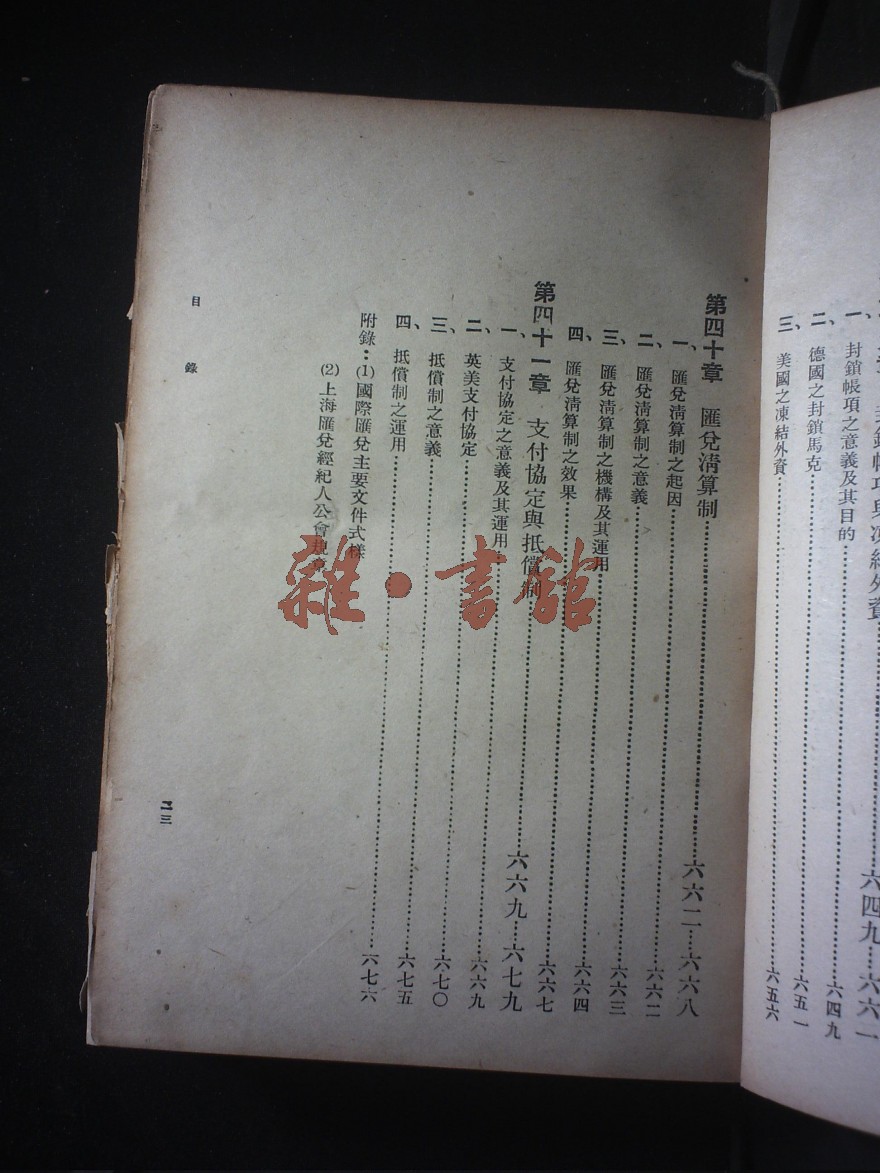 封鎖帳項與凍結外資……六四九…六六一
一、封鎖帳項之意義及其目的……六四九
二、德國之封鎖馬克……六五一
三、美國之凍結外資……六五六
第四十章 匯兌清算制……六六二…六六八
一、匯兌清算制之起因……六六二
二、匯兌清算制之意義……六六三
三、匯兌清算制之機構及其運用……六六四
四、匯兌清算制之效果……六六七
第四十一章 支付協定與抵償制……六六九…六七九
一、支付協定之意義及其運用……六六九
二、英美支付協定……六七〇
三、抵償制之意義……六七五
四、抵償制之運用……六七六
附錄：(1)國際匯兌主要文件式樣
(2)上海匯兌經紀人公會規章
目錄
二三
雜·書館